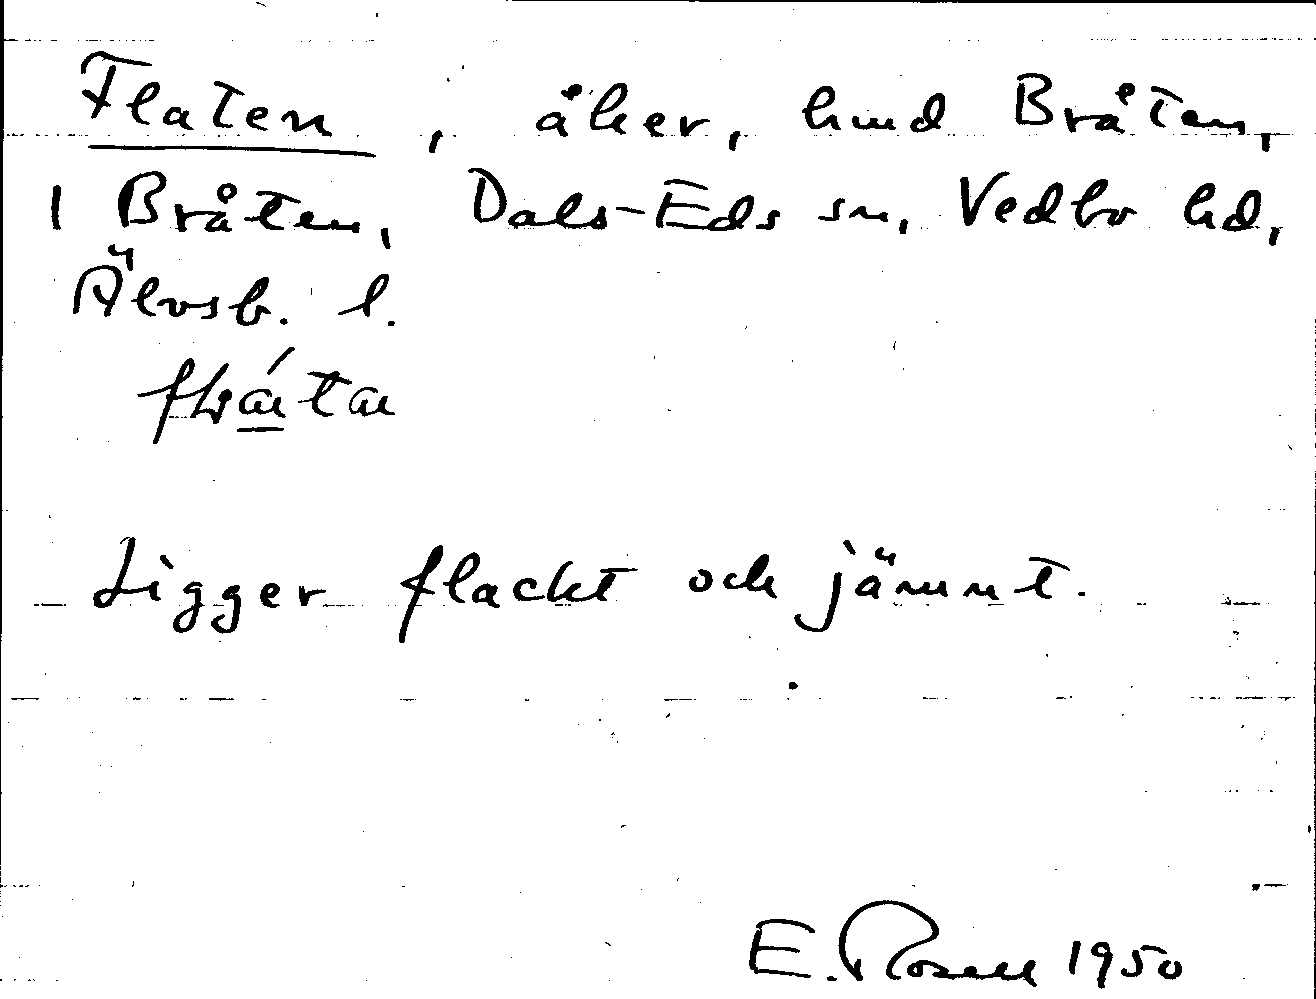 Flaten, åker, hmd Bråten,
1 Bråten, Dals-Eds sn, Vedbo hd,
Älvsb. l.
Ligger flackt och jämnt.
E. Rosell 1950